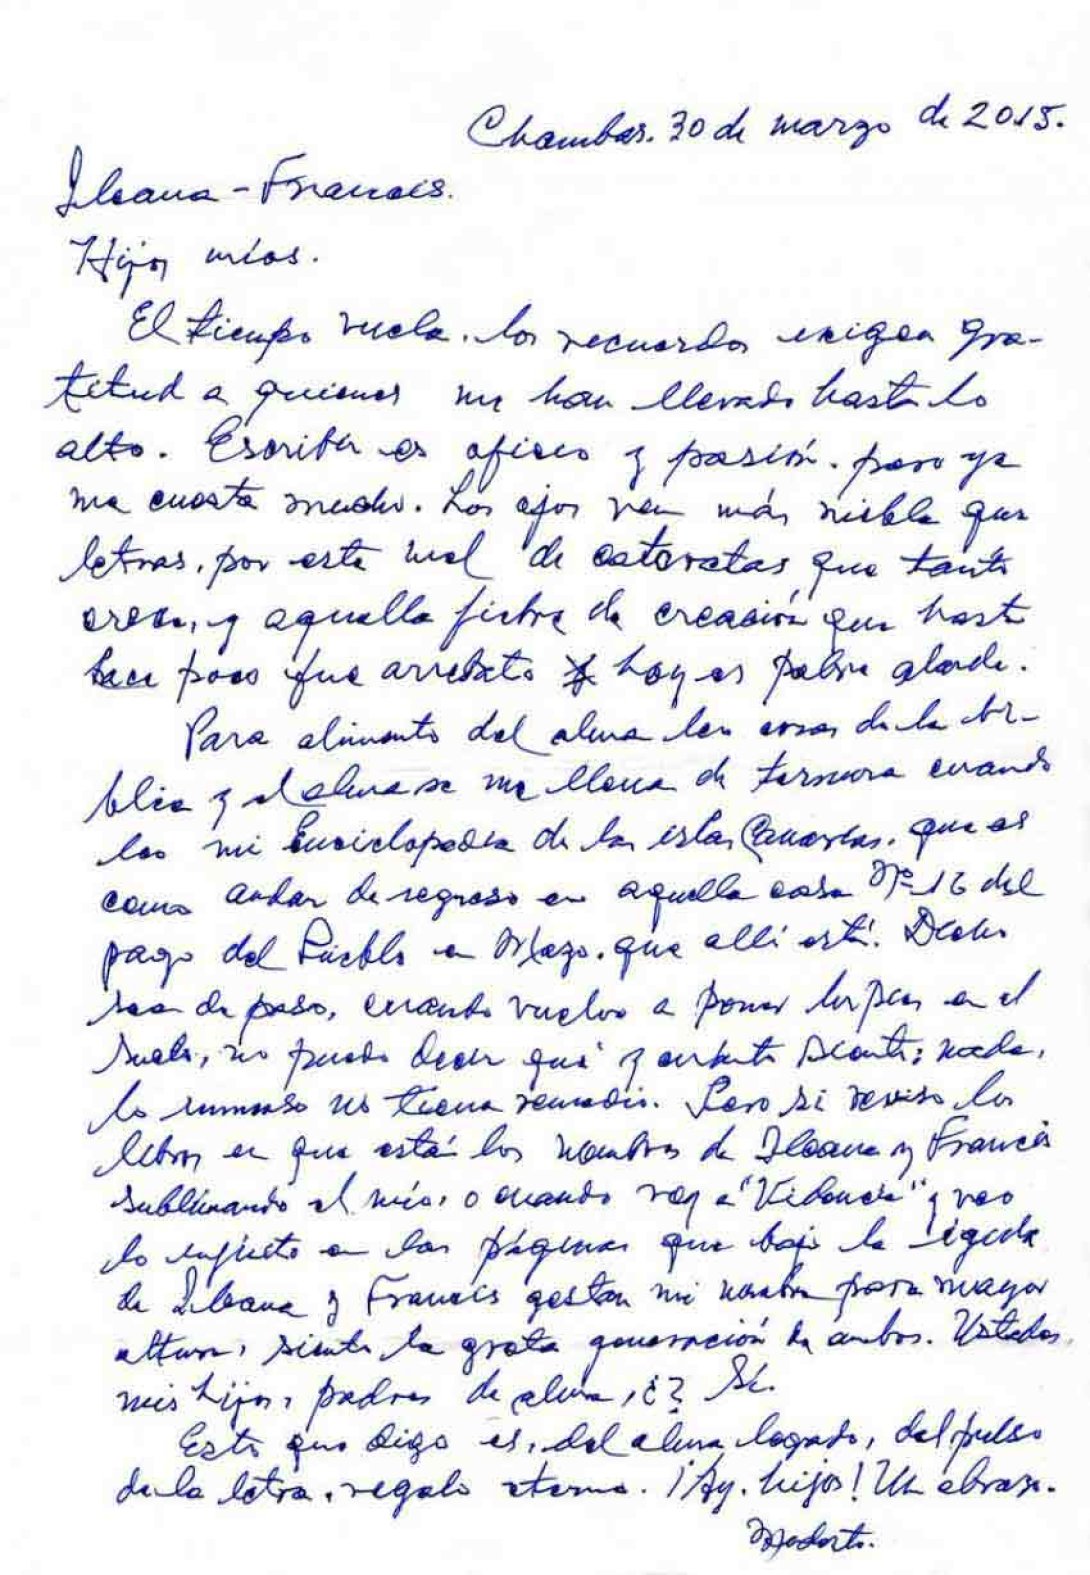 Chambas. 30 de marzo de 2015.
Ileana - Francis.
Hijos míos.
El tiempo vuela. los recuerdos exigen gra-
titud a quienes me han llevado hasta lo
alto. Escribir es oficio y pasión. pero ya
me cuesta mucho. Los ojos ven más niebla que
letras, por este mal de cataratas que tanto
crece, y aquella fiebre de creación que hasta
hace poco fue arrebato hoy es pobre alarde.
Para alimento del alma leo cosas de la bi-
blia y el alma se me llena de ternura cuando
leo mi Enciclopedia de las islas Canarias. que es
como andar de regreso en aquella casa Nº 16 del
pago del Pueblo en Mazo. que allí está. Dicho
sea de paso, cuando vuelvo a poner los pies en el
suelo, no puedo decir qué y cuánto siento; nada,
lo inmenso no tiene remedio. Pero si reviso los
libros en que está los nombres de Ileana y Francis
sublimando el mío, o cuando voy a "Videncia" y veo
lo en las páginas que bajo la égida
de Ileana y Francis gestan mi nombre para mayor
altura, siento la grata generación de ambos. Ustedes,
mis hijos, padres de alma, ¿? Sí.
Esto que digo es, del alma legado, del pulso
de la letra, regalo eterno. ¡Ay, hijos! Un abrazo.
Modesto.